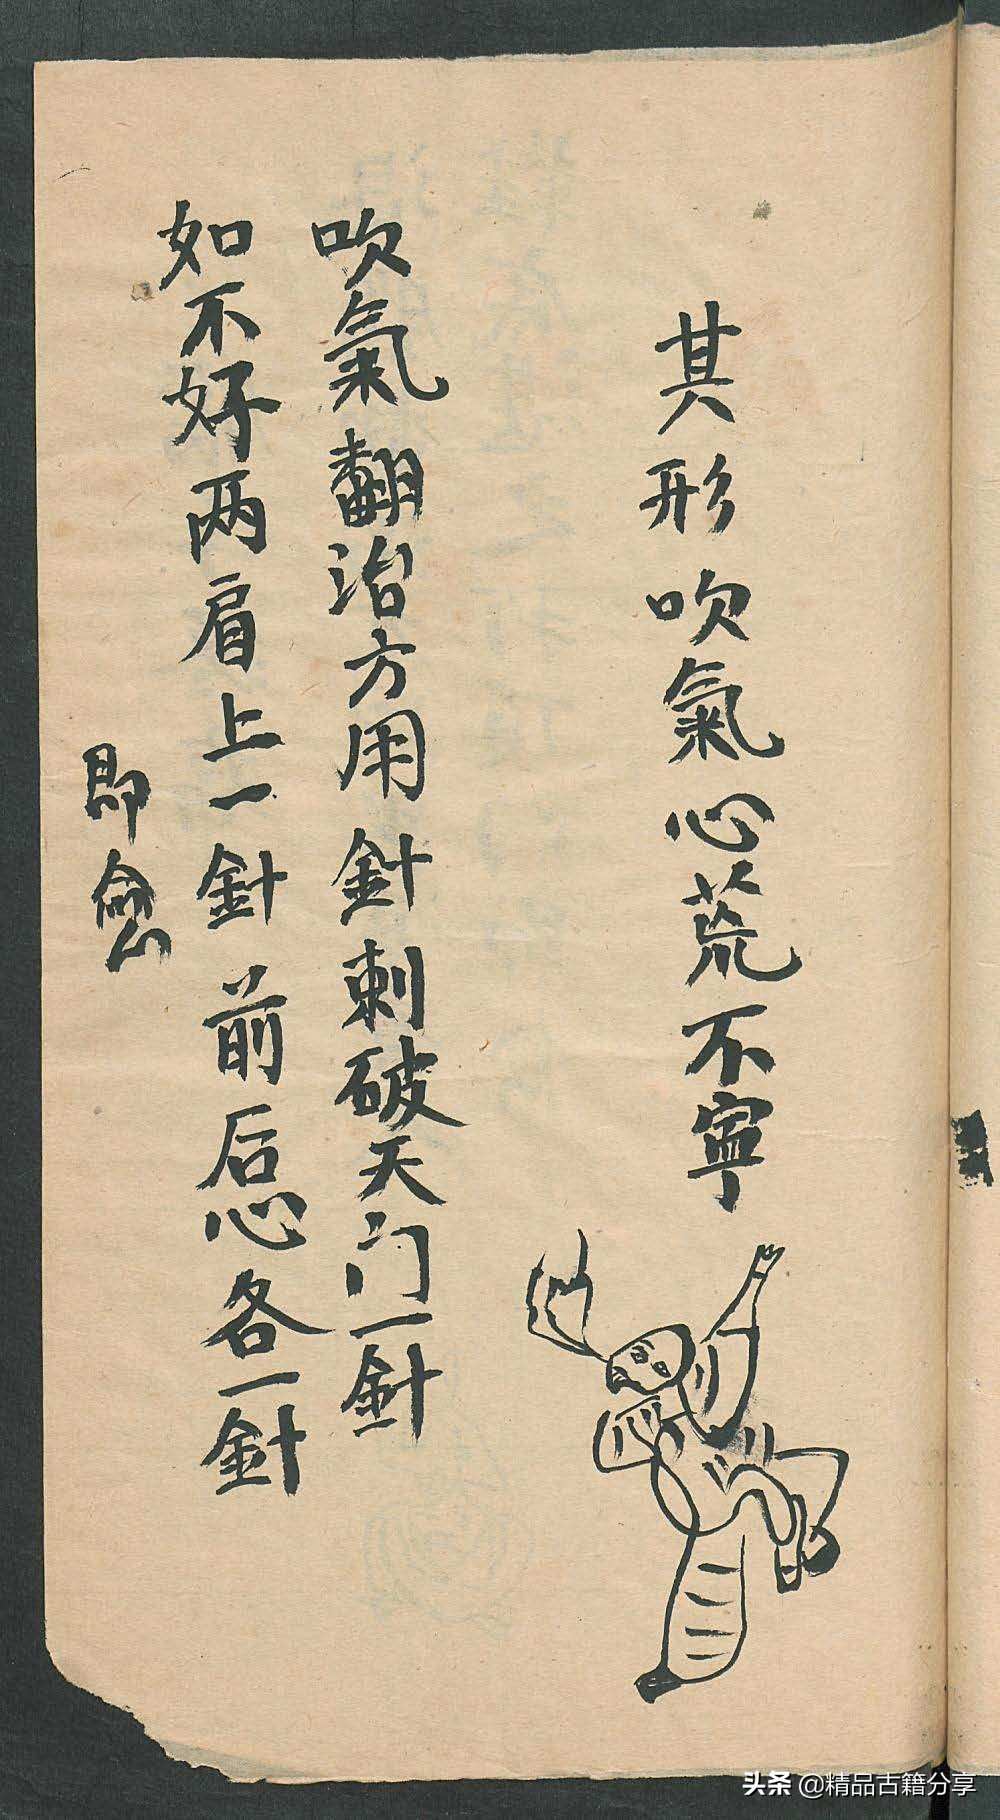 其形吹氣心荒不寧
吹氣翻治方用針刺破天门一針
如不好两肩上一針前后心各一針
即愈
头条@精品古籍分享